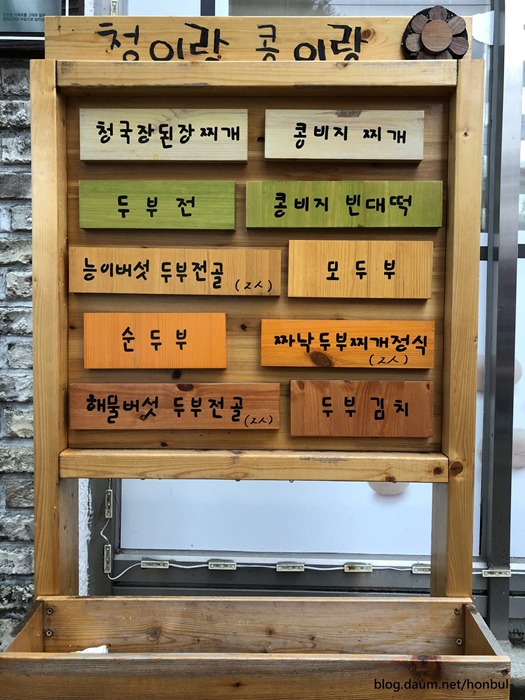 청이랑 콩이랑
청국장된장찌개
콩비지 찌개
두부전
콩비지 빈대떡
능이버섯 두부전골 (2人)
모두부
순두부
짜낙두부찌개정식
(2人)
해물버섯 두부전골 (2人)
두부김치
blog.daum.net/honbul